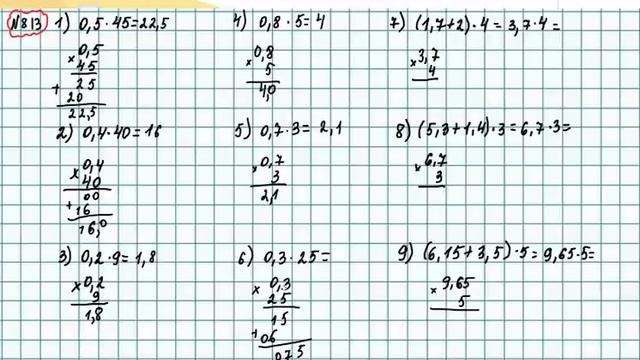 №813
1) 0,5 · 45 = 22,5
× 0,5
45
25
+ 20
22,5
2) 0,4 · 40 = 16
× 0,4
40
00
+ 16
16,0
3) 0,2 · 9 = 1,8
× 0,2
9
1,8
4) 0,8 · 5 = 4
× 0,8
5
4,0
5) 0,7 · 3 = 2,1
× 0,7
3
2,1
6) 0,3 · 25 =
× 0,3
25
15
+ 06
075
7) (1,7+2) · 4 = 3,7 · 4 =
× 3,7
4
8) (5,3+1,4) · 3 = 6,7 · 3 =
× 6,7
3
9) (6,15 + 3,5) · 5 = 9,65 · 5 =
× 9,65
5